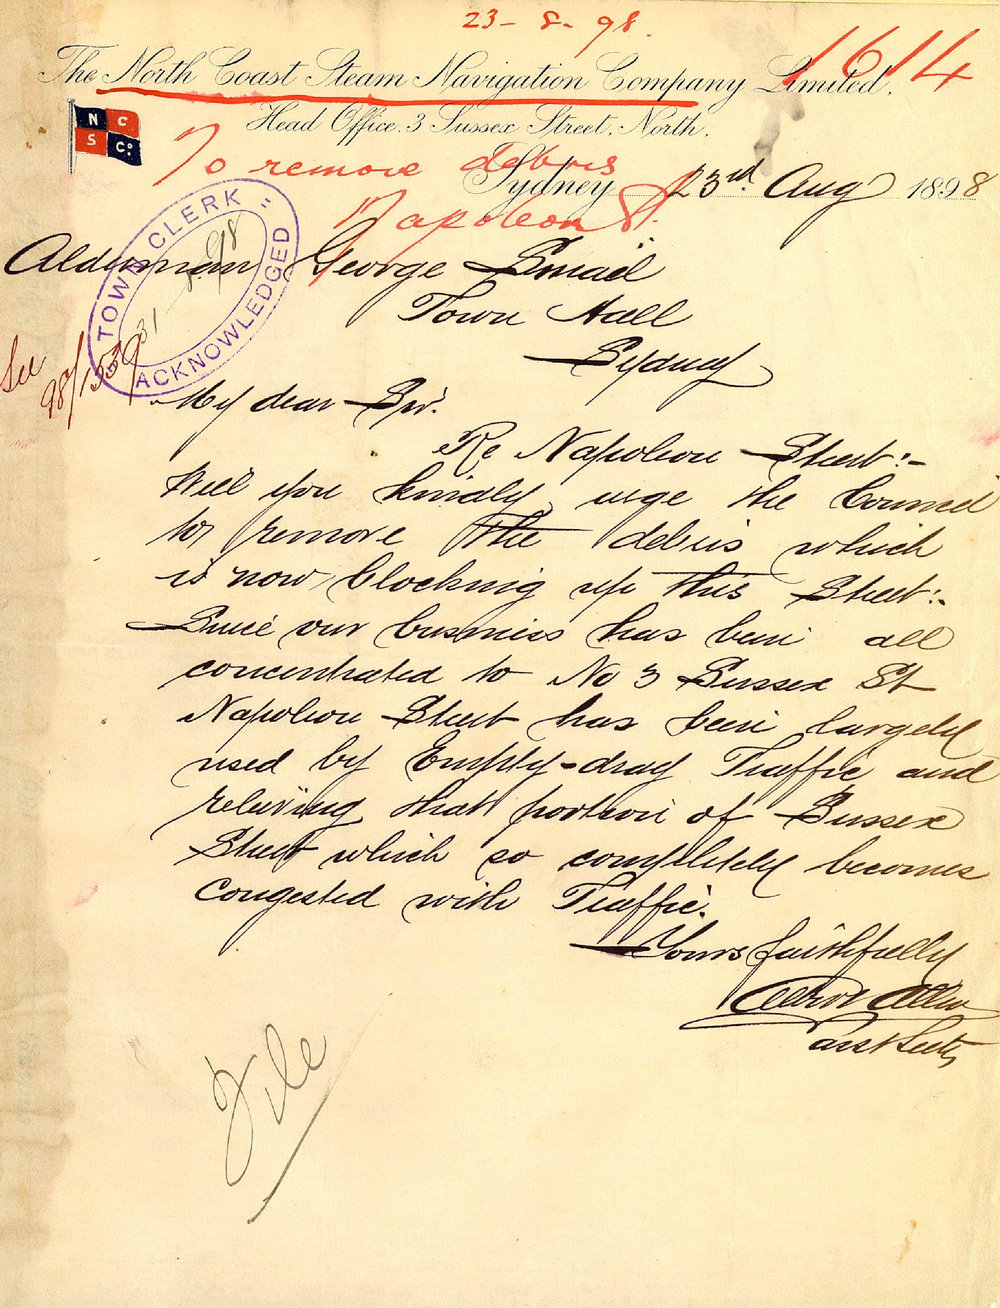 23-8-98.
1614
The North Coast Steam Navigation Company Limited.
Head Office. 3 Sussex Street. North.
N C
S Co.
To remove debris
Sydney 23rd Aug 1898
Napoleon St.
TOWN CLERK
31 8 98
ACKNOWLEDGED
See
98/1539
Alderman George Smail
Town Hall
Sydney
My dear Sir.
Re Napoleon Street:-
Will you kindly urge the Council
to remove the debris which
is now blocking up this Street:-
Since our business has been all
concentrated to No 3 Sussex St
Napoleon Street has been largely
used by Empty-dray Traffic and
relieving that portion of Sussex
Street which so completely becomes
congested with Traffic.
Yours faithfully
Allen
File